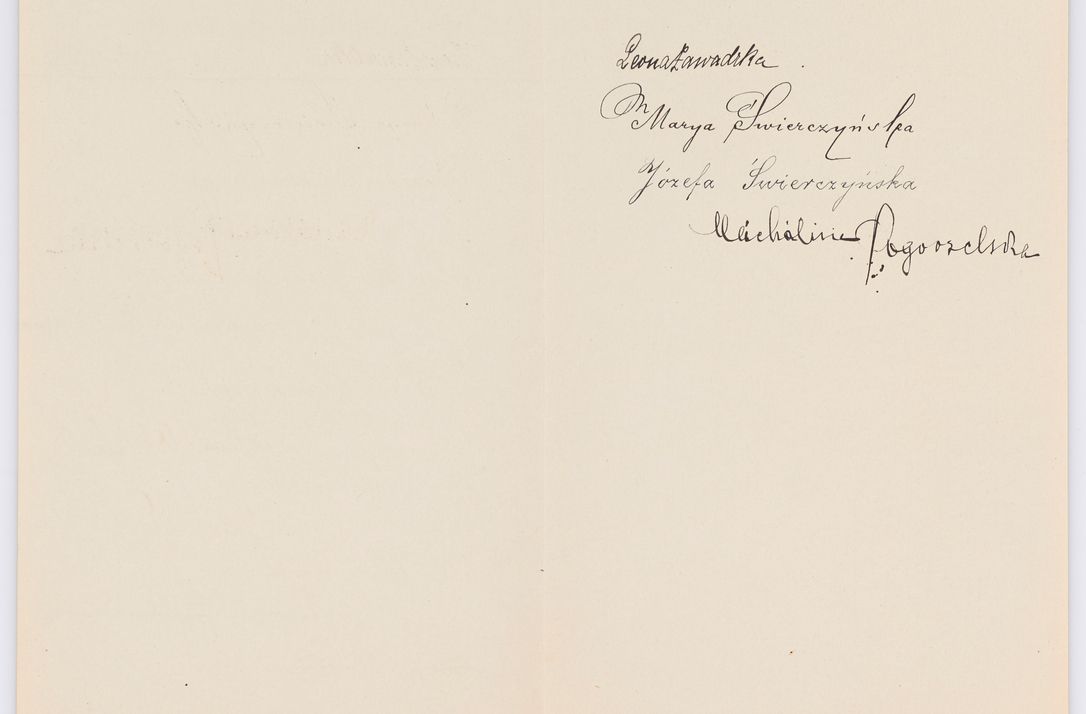 Leona Zawadzka
Marya Świerczyńska
Józefa Świerczyńska
Michalina Pogorzelska